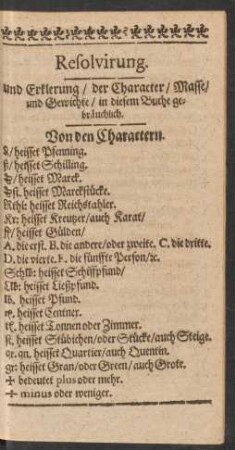 Resolvirung.
und Erklerung / der Character / Masse /
und Gewichte / in diesem Buche ge-
bräuchlich.
Von den Charactern.
₰ / heisset Pfenning.
ß / heisset Schilling.
heisset Marck.
heisset Marckstücke.
Rthl: heisset Reichstahler.
Kr: heisset Kreutzer / auch Karat /
fl / heisset Gülden /
A, die erst. B. die andere / oder zweite. C. die dritte.
D. die vierte. E. die fünffte Person / ꝛc.
Schlb: heisset Schiffpfund /
Llb: heisset Ließpfund.
lb. heisset Pfund.
heisset Centner.
heisset Tonnen oder Zimmer.
st. heisset Stübichen / oder Stücke / auch Steige.
qr. qn. heisset Quartier / auch Quentin.
gr: heisset Gran / oder Green / auch Grote.
+ bedeutet plus oder mehr.
÷ minus oder weniger.